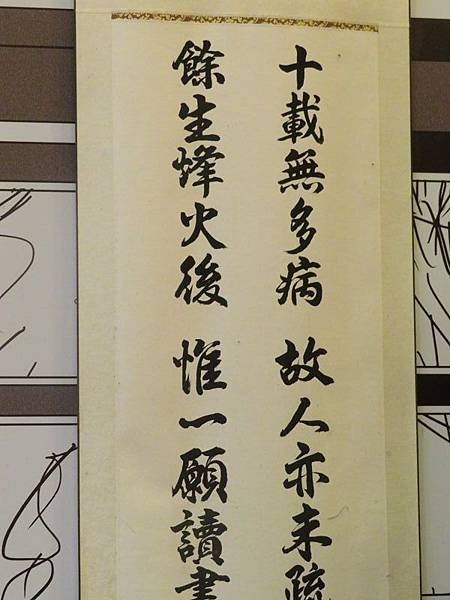 十載無多病 故人亦未疏
餘生烽火後 惟一願讀書